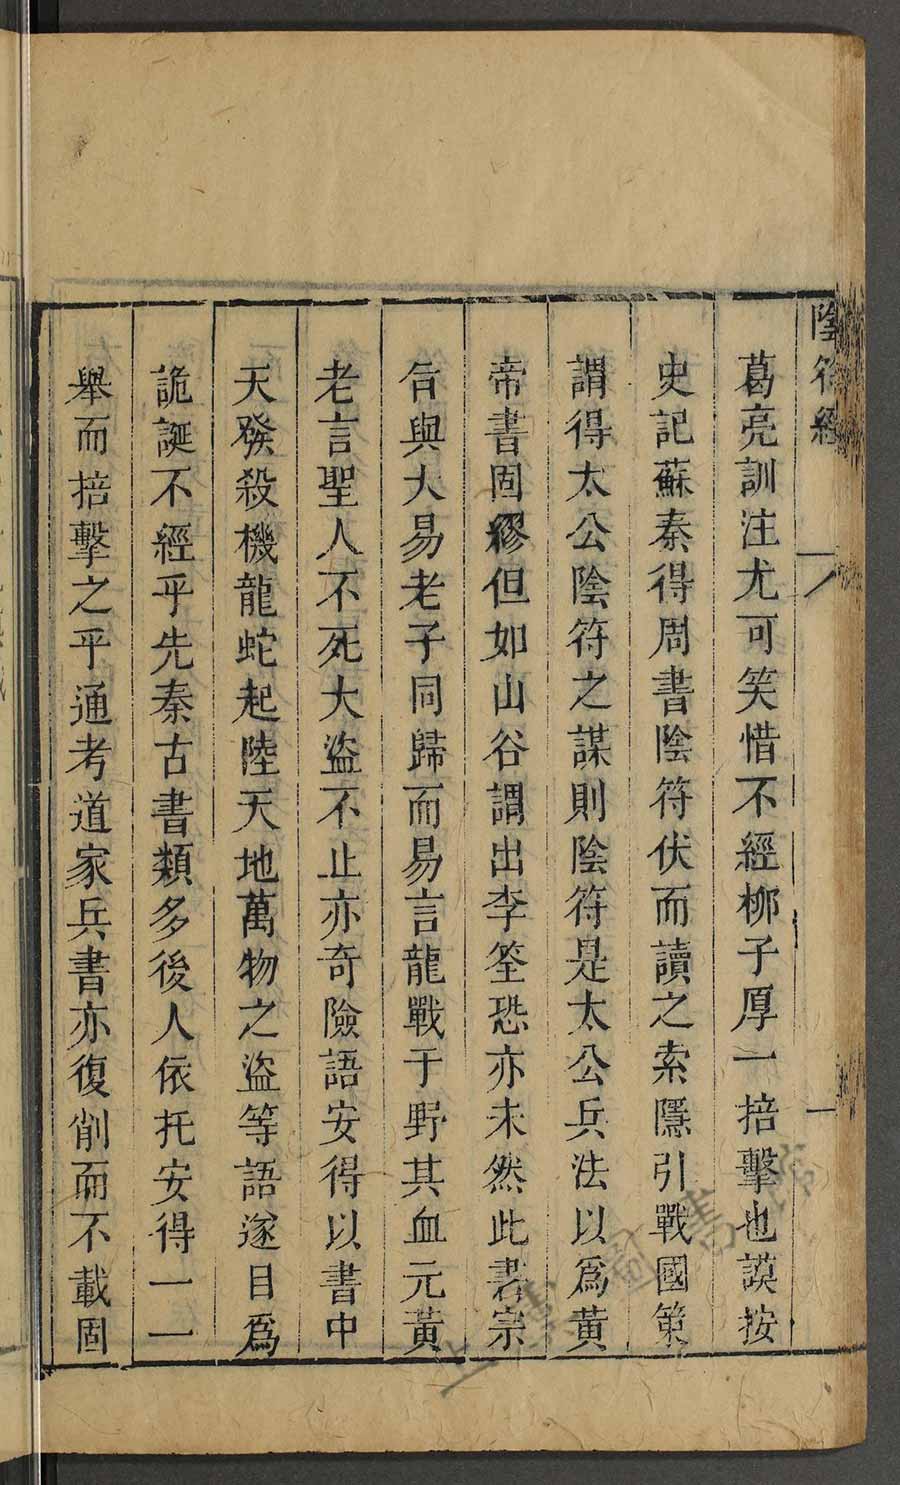 陰符經
一
葛亮訓注尤可笑惜不經柳子厚一掊擊也謨按
史記蘇秦得周書陰符伏而讀之索隱引戰國策
謂得太公陰符之謀則陰符是太公兵法以爲黃
帝書固繆但如山谷謂出李筌恐亦未然此書宗
旨與大易老子同歸而易言龍戰于野其血元黃
老言聖人不死大盜不止亦奇險語安得以書中
天發殺機龍蛇起陸天地萬物之盜等語遂目爲
詭誕不經乎先秦古書類多後人依托安得一一
舉而掊擊之乎通考道家兵書亦復削而不載固